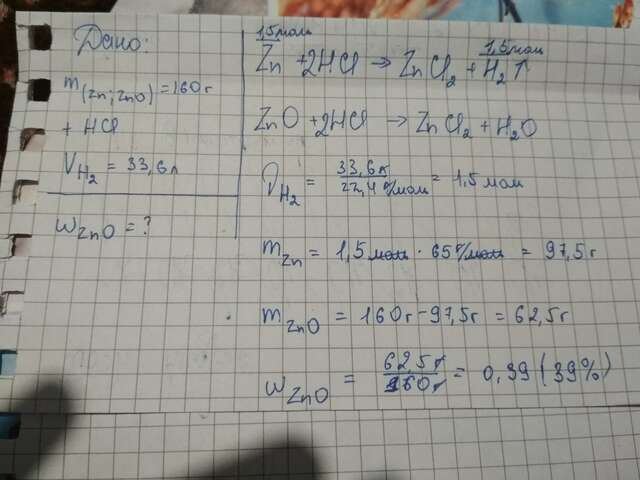 Дано:
m(Zn; ZnO) = 160 г
+ HCl
VH2 = 33,6 л
WZnO = ?
1,5 моль 1,5 моль
Zn + 2HCl → ZnCl2 + H2↑
ZnO + 2HCl → ZnCl2 + H2O
νH2 = 33,6 л / 22,4 л/моль = 1,5 моль
mZn = 1,5 моль · 65 г/моль = 97,5 г
mZnO = 160 г - 97,5 г = 62,5 г
WZnO = 62,5 г / 160 г = 0,39 (39%)